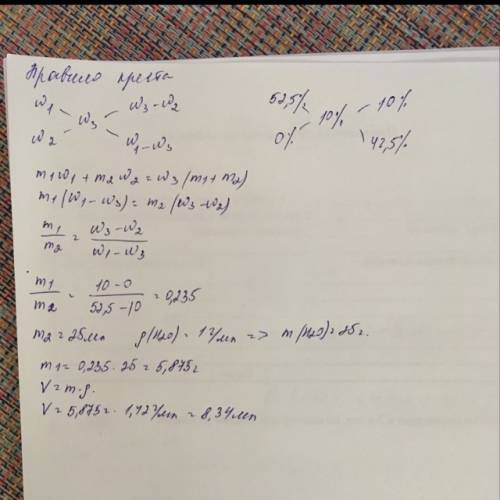 Правило креста
ω1 ω3 ω3-ω2 52,5% 10% 10%
ω2 ω1-ω3 0% 42,5%
m1ω1 + m2ω2 = ω3(m1+m2)
m1(ω1-ω3) = m2(ω3-ω2)
m1/m2 = ω3-ω2/ω1-ω3
m1/m2 = 10-0/52,5-10 = 0,235
m2=25мл ρ(H2O) = 1г/мл => m(H2O)=25г.
m1= 0,235 · 25 = 5,875г
V = m·ρ.
V = 5,875г · 1,42г/мл = 8,34мл